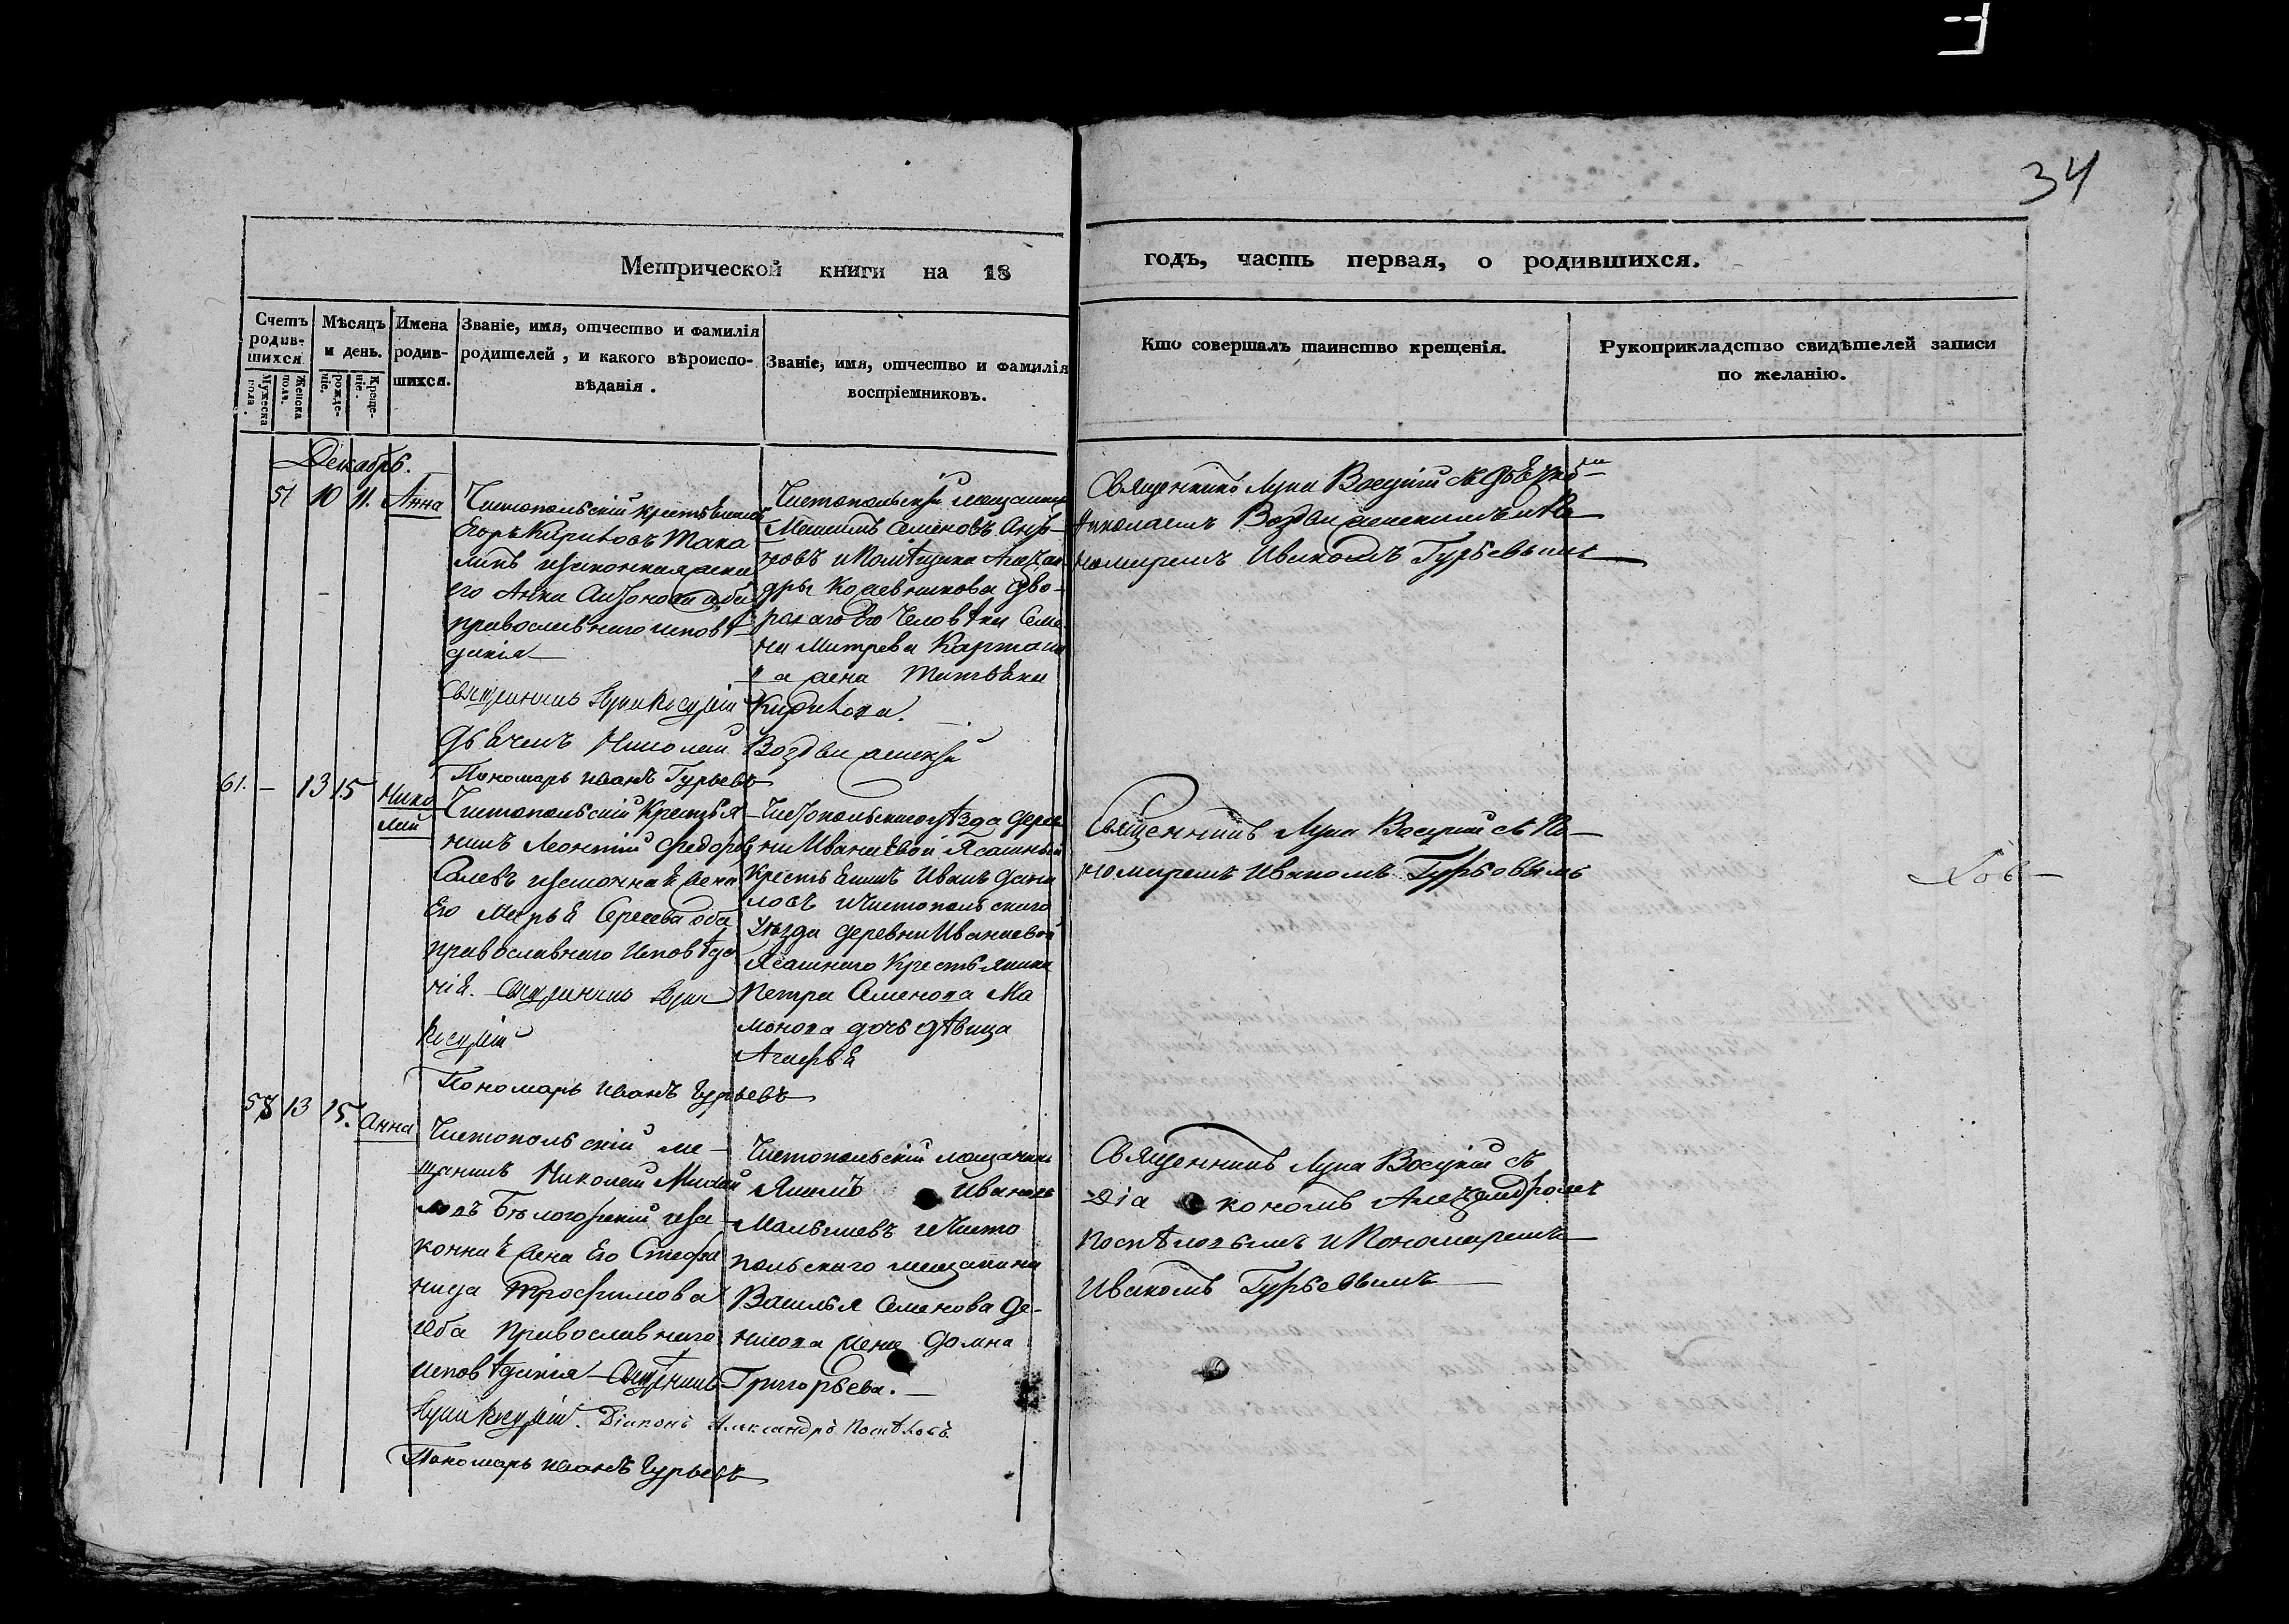 34
Метрической книги на 18
годъ, часть первая, о родившихся.
Счетъ родившихся.
Мужеска пола.
Женска пола.
Мѣсяцъ и день.
рожденіе.
Крещеніе.
Имена родившихся.
Званіе, имя, отчество и фамилія
родителей, и какого вѣроиспо-
вѣданія.
Званіе, имя, отчество и фамилія
воспріемниковъ.
Кто совершалъ таинство крещенія.
Рукоприкладство свидѣтелей записи
по желанію.
Декабрь.
57 10 11. Анна
Чистопольскій крестьянинъ
Егоръ Кириловъ
законная жена
его Анна Антонова оба
православнаго исповѣ-
данія
Священникъ Лука
Дьячекъ Николай Воздвиженскій
Пономарь Иванъ Гурьевъ
Чистопольскій мещанинъ
Максимъ Семеновъ
новъ и Помѣщика
Кожевникова дво-
роваго его человѣка Семе-
на Митрева
жена Татьяна
Кирилова.
Священникъ Лука съ Дьячкомъ
Николаемъ Воздвиженскимъ и По-
номаремъ Иваномъ Гурьевымъ
61. – 13 15 Нико
лай
Чистопольскій Крестья
нинъ Леонтій Федоровъ
и законная жена
Его Марья Сергеева оба
православнаго Исповѣда
нія. Священникъ Лука
Пономарь Иванъ Гурьевъ
Чистопольскаго уѣзда дерев
ни Иванаевой Ясашный
Крестьянинъ Иванъ Дани
ловъ и Чистопольскаго
Уѣзда деревни Иванаевой
Ясашнаго Крестьянина
Петра Семенова Ма
монова дочь дѣвица
Агафья
Священникъ Лука съ По-
номаремъ Иваномъ Гурьевымъ
58 13 15. Анна
Чистопольскій ме-
щанинъ Николай Михай
ловъ Бѣлогорскій и за
конная жена Его Степа
нида Трофимова
оба Православнаго
исповѣданія Священникъ
Лука
Діаконъ Александръ Поспѣловъ.
Пономарь Иванъ Гурьевъ
Чистопольскій мещанинъ
Якимъ Ивановъ
Малышевъ и Чисто
польскаго мещанина
Василья Семенова Де-
жена Домна
Григорьева.
Священникъ Лука съ
Діакономъ Александромъ
Поспѣловымъ и Пономаремъ
Иваномъ Гурьевымъ